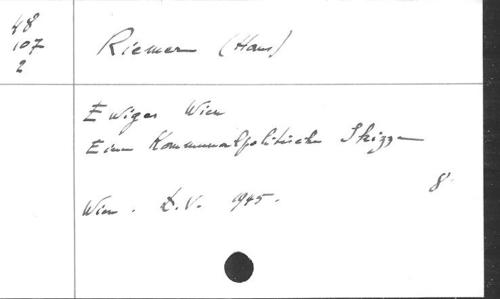 48
107
2
Riemer (Hans)
Ewiges Wien
Eine Kommunalpolitische Skizze
Wien. D.V. 1945.
8°